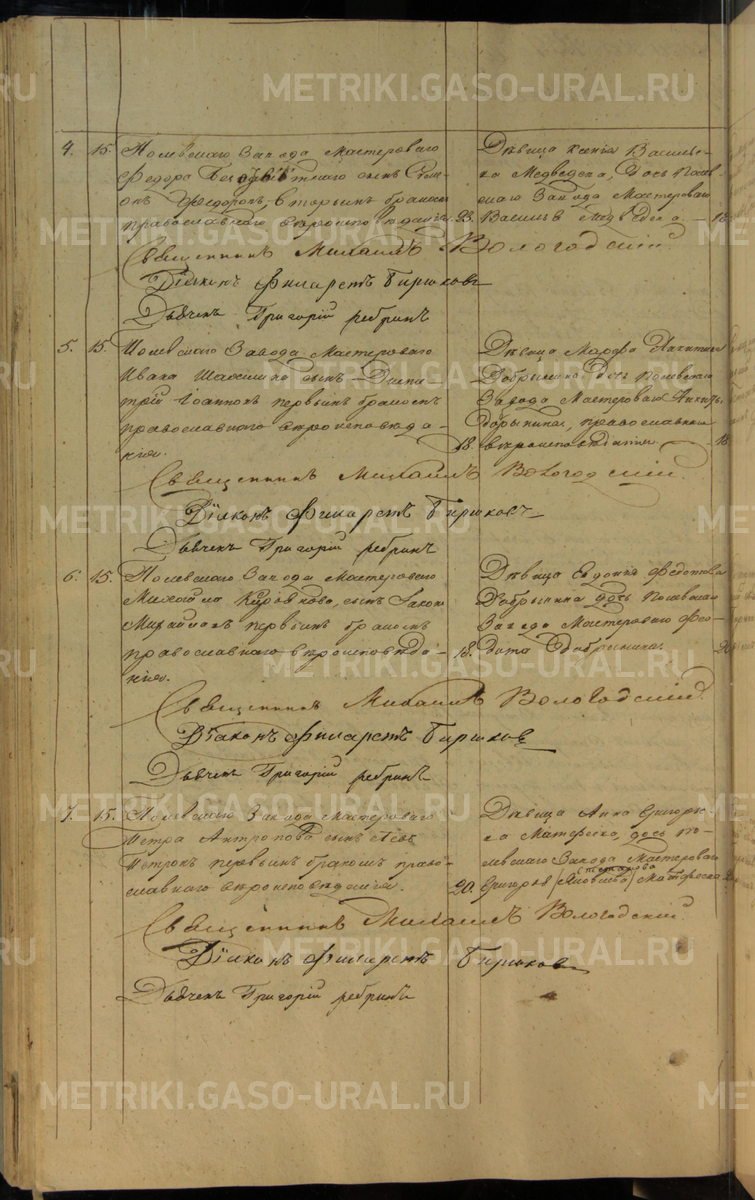 METRIKI.GASO-URAL.RU
4. 15. Полевскаго Завода Мастероваго
Федора сынъ
Федоровъ, вторымъ бракомъ
православнаго вѣроисповѣданія 23.
Дѣвица Ксенія Василье-
ва Медведева, дочь Полев-
скаго Завода Мастероваго
Василья Медведева 18
Священникъ Михаилъ Вологодскій
Діаконъ Филаретъ Бирюковъ
Дьячекъ Григорій Ребринъ
5. 15. Полевскаго Завода Мастероваго
Ивана сынъ Дими-
трій Іоанновъ первымъ бракомъ
православнаго вѣроисповѣда-
нія. 18.
Дѣвица Марфа Никитина
Добрынина Дочь Полевскаго
Завода Мастероваго Никиты
Добрынина, православнаго
вѣроисповѣданія 18.
Священникъ Михаилъ Вологодскій
Діаконъ Филаретъ Бирюковъ
Дьячекъ Григорій Ребринъ
6. 15. Полевскаго Завода Мастероваго
Михайла Кирьянова, сынъ
Михайловъ первымъ бракомъ
православнаго вѣроисповѣда-
нія. 18.
Дѣвица Евдокія Федотова
Добрынина дочь Полевскаго
Завода Мастероваго Фео-
дота Добрынина. 20
Священникъ Михаилъ Вологодскій
Діаконъ Филаретъ Бирюковъ
Дьячекъ Григорій Ребринъ
7. 15. Полевскаго Завода Мастероваго
Петра Антропова сынъ
Петровъ первымъ бракомъ право-
славнаго вѣроисповѣданія. 20.
Дѣвица Анна Григорье-
ва Матвеева, дочь По-
левскаго Завода Мастероваго
Григорья Матвеева
Священникъ Михаилъ Вологодскій
Діаконъ Филаретъ Бирюковъ
Дьячекъ Григорій Ребринъ
METRIKI.GASO-URAL.RU